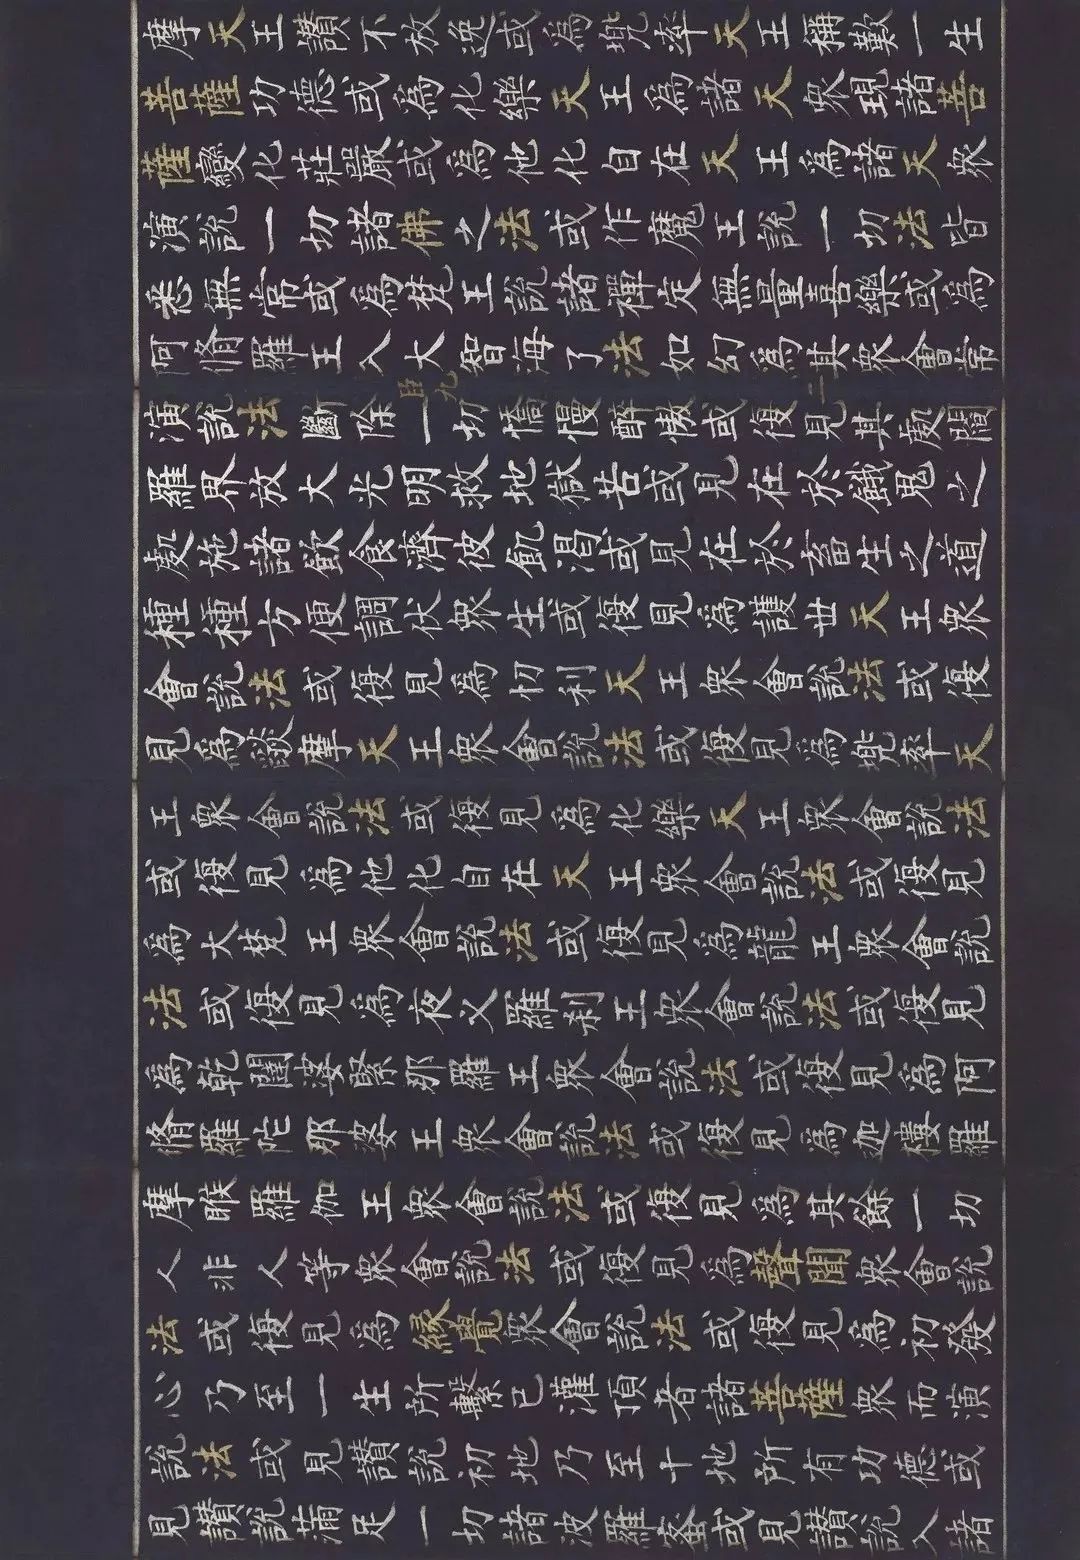 摩天王讚不放逸或為兜率天王稱歎一生
菩薩功德或為化樂天王為諸天眾現諸菩
薩變化莊嚴或為他化自在天王為諸天眾
演說一切諸佛之法或作魔王說一切法皆
悉無常或為梵王說諸禪定無量喜樂或為
阿脩羅王入大智海了法如幻為其眾會常
演說法斷除一切憍慢醉慠或復見其處閻
羅界放大光明救地獄苦或見在於餓鬼之
處施諸飲食濟彼飢渴或見在於畜生之道
種種方便調伏眾生或復見為護世天王眾
會說法或復見為忉利天王眾會說法或復
見為燄摩天王眾會說法或復見為兜率天
王眾會說法或復見為化樂天王眾會說法
或復見為他化自在天王眾會說法或復見
為大梵王眾會說法或復見為龍王眾會說
法或復見為夜叉羅剎王眾會說法或復見
為乾闥婆緊那羅王眾會說法或復見為阿
脩羅陀那婆王眾會說法或復見為迦樓羅
摩睺羅伽王眾會說法或復見為其餘一切
人非人等眾會說法或復見為聲聞眾會說
法或復見為緣覺眾會說法或復見為初發
心乃至一生所繫已灌頂者諸菩薩眾而演
說法或見讚說初地乃至十地所有功德或
見讚說滿足一切諸波羅蜜或見讚說入諸